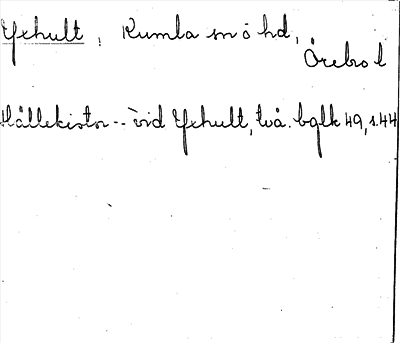 Yxhult, Kumla sn o hd,
Örebro l
Hällekistor -- vid Yxhult, två. bglk 49, s.44